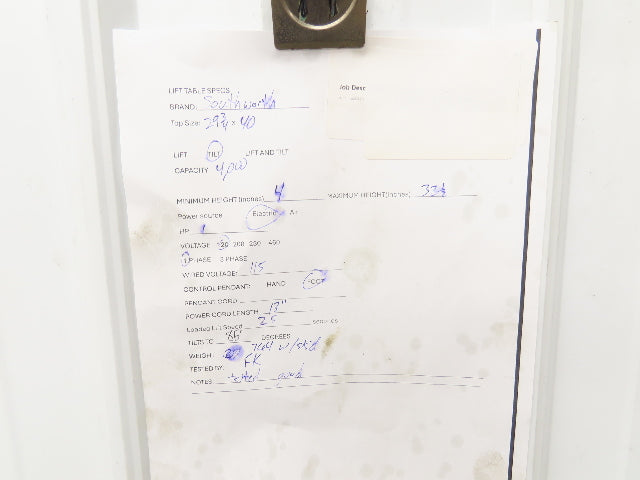 LIFT TABLE SPECS
Job Desc
BRAND: Southworth
Top Size: 29¾ x 40
LIFT TILT LIFT AND TILT
CAPACITY 4,000
MINIMUM HEIGHT (inches) 4 MAXIMUM HEIGHT (inches)
Power source Electric Air
HP 1
VOLTAGE 120 208 230 460
1 PHASE 3 PHASE
WIRED VOLTAGE: 115
CONTROL PENDANT: HAND FOOT
PENDANT CORD:
POWER CORD LENGTH
Loaded Lift Speed 25 seconds
TILTS TO DEGREES
WEIGHT 764 w/skid
TESTED BY: FK
NOTES: tested good